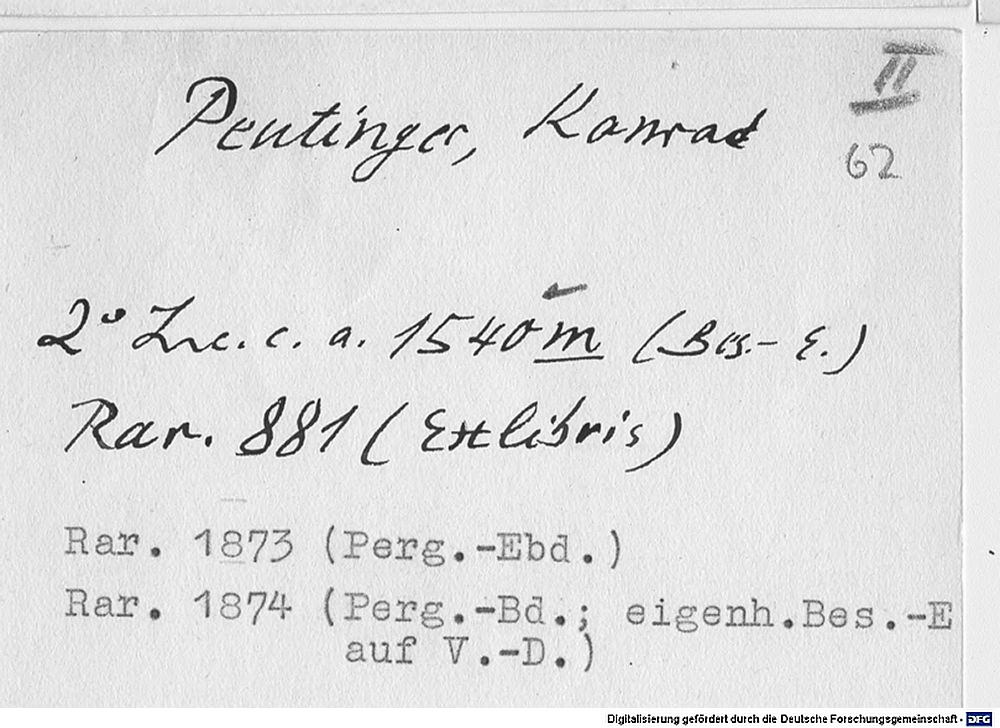 Peutinger, Konrad
II
62
2° Inc. c. a. 1540m (Bes.- E.)
Rar. 881 (Exlibris)
Rar. 1873 (Perg.-Ebd.)
Rar. 1874 (Perg.-Bd.; eigenh.Bes.-E
auf V.-D.)
Digitalisierung gefördert durch die Deutsche Forschungsgemeinschaft - DFG